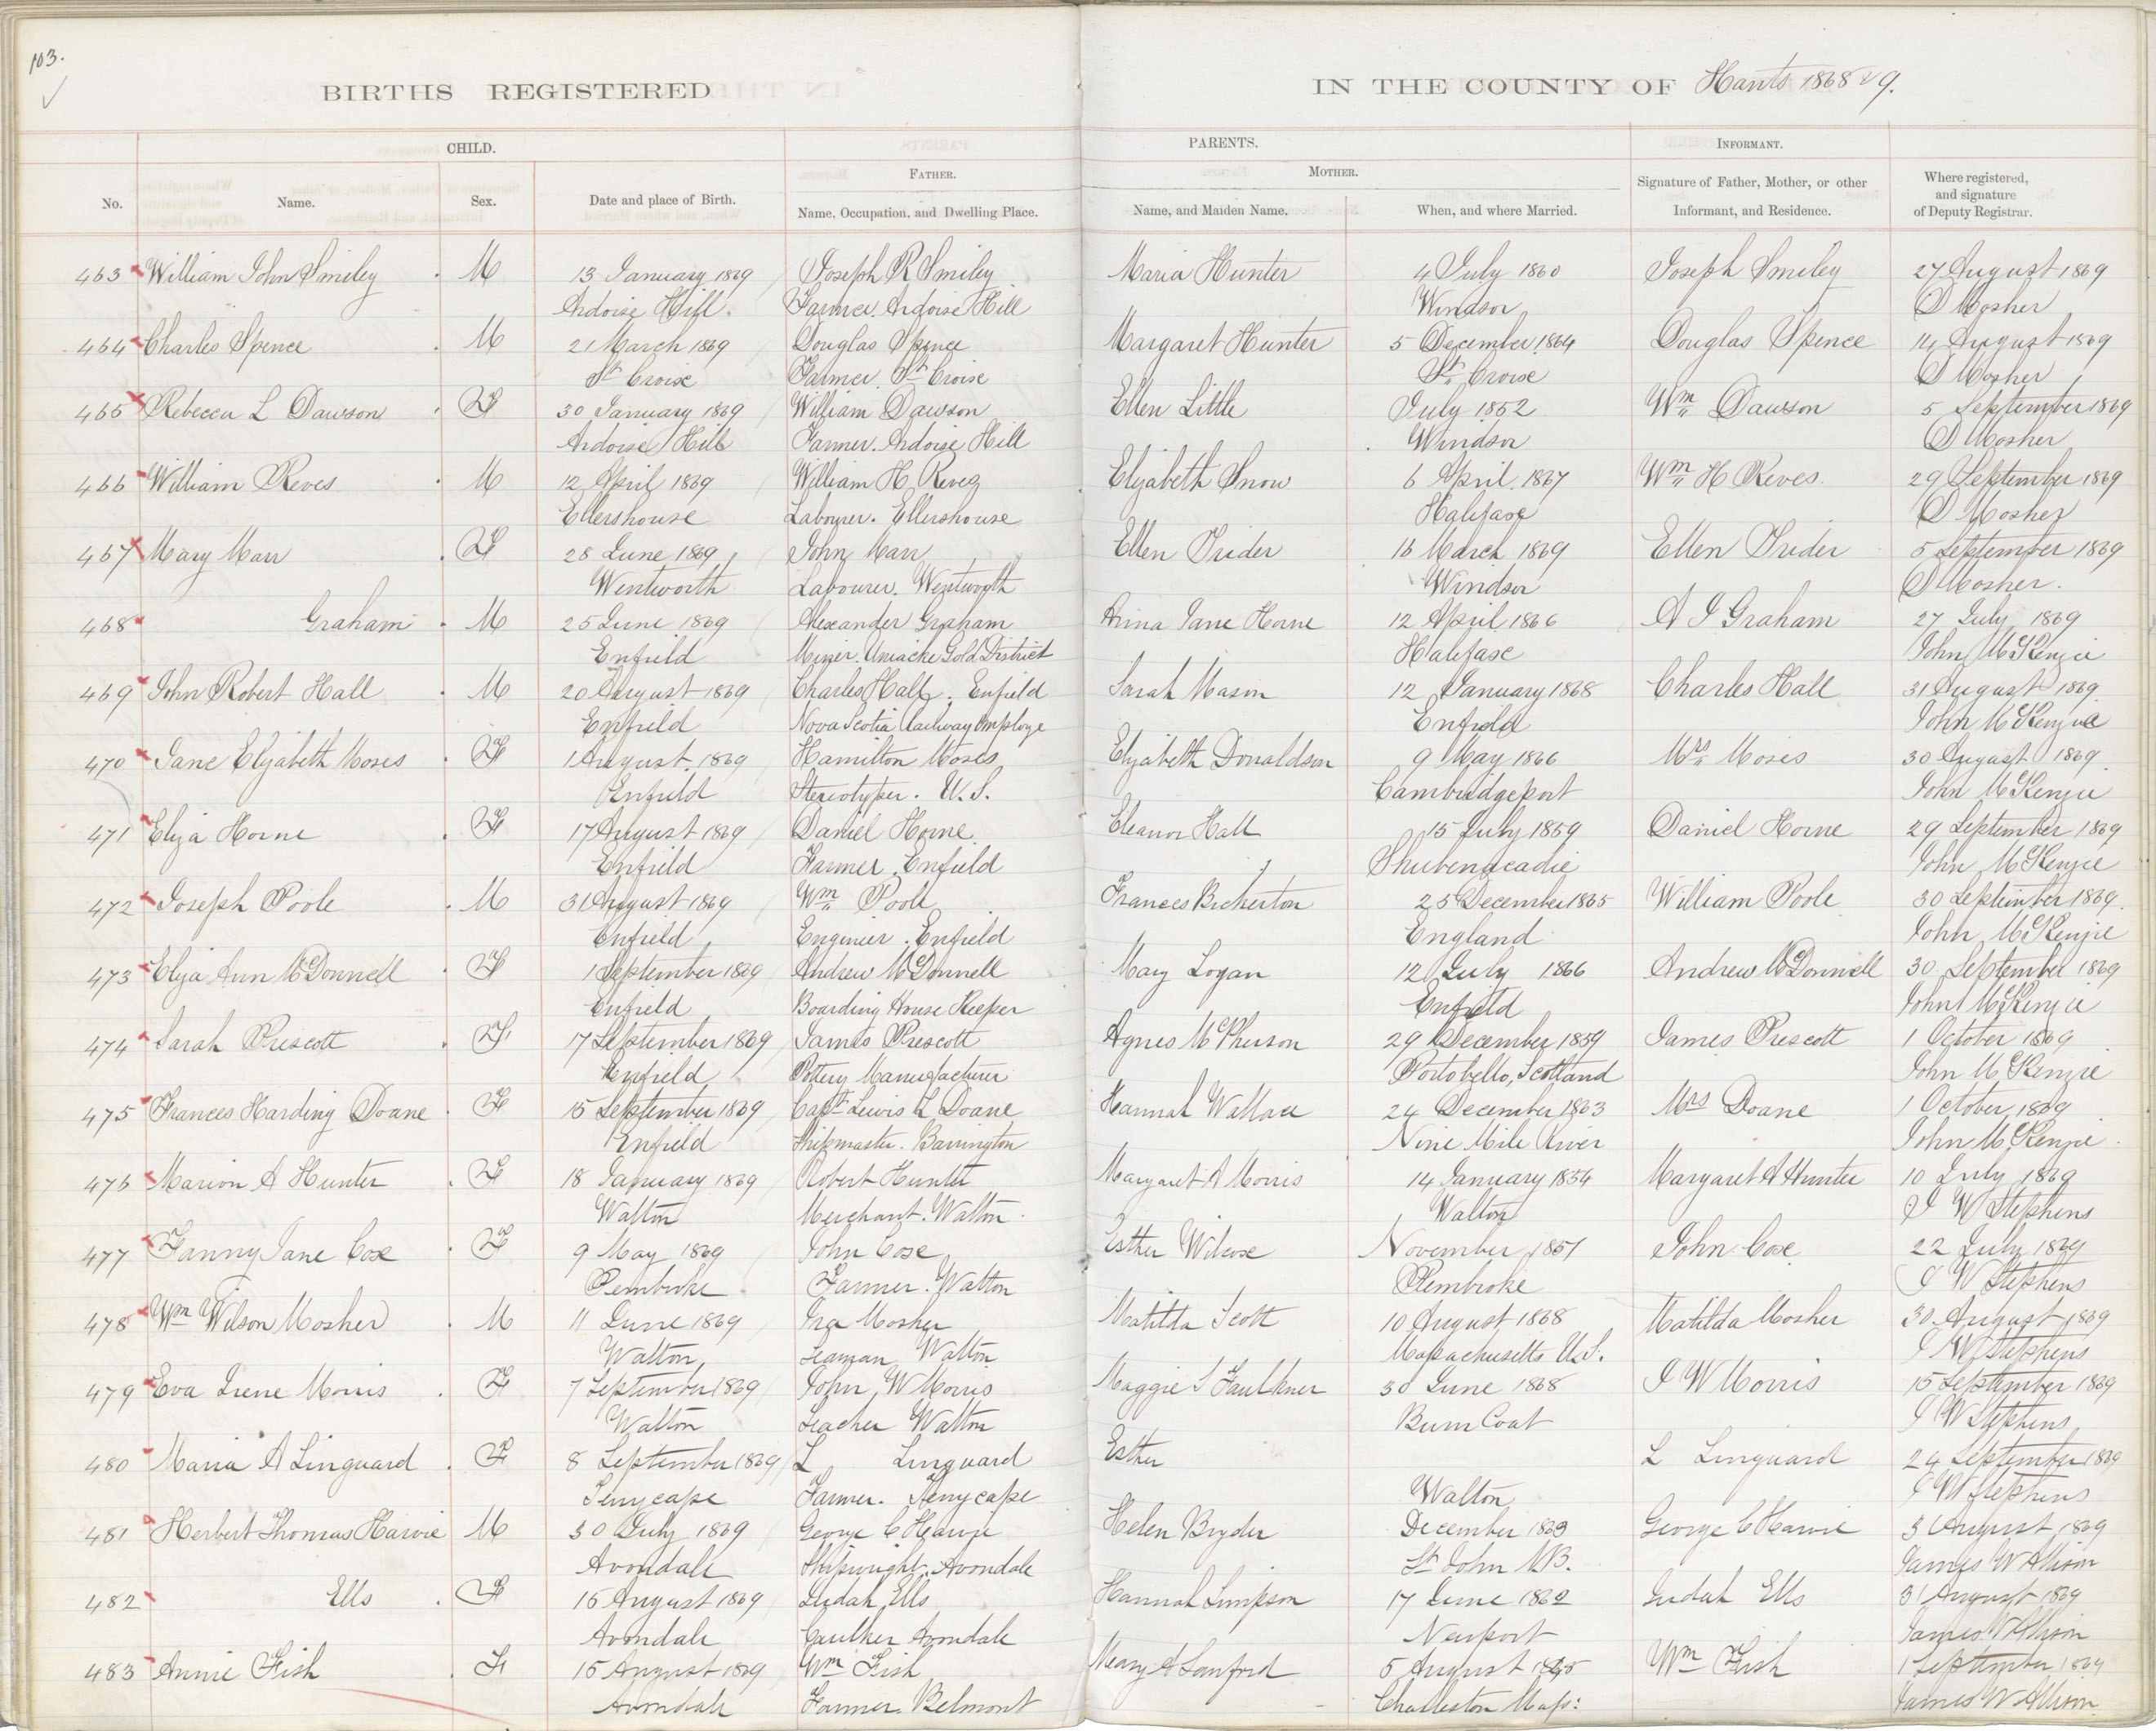 103.
BIRTHS REGISTERED IN THE COUNTY OF Hants 1868 & 9.
CHILD. PARENTS. INFORMANT.
FATHER. MOTHER.
No. Name. Sex. Date and place of Birth. Name, Occupation, and Dwelling Place. Name, and Maiden Name. When, and where Married. Signature of Father, Mother, or other Informant, and Residence. Where registered, and signature of Deputy Registrar.
463 William John Smiley M 13 January 1869 Joseph R Smiley Maria Hunter 4 July 1860 Joseph Smiley 27 August 1869
Ardoise Hill. Farmer. Ardoise Hill Windsor D Mosher
464 Charles Spence M 21 March 1869 Douglas Spence Margaret Hunter 5 December 1864 Douglas Spence 14 August 1869
St Croix Farmer. St Croix St Croix D Mosher
465 Rebecca L Dawson F 30 January 1869 William Dawson Ellen Little July 1852 Wm Dawson 5 September 1869
Ardoise Hill Farmer. Ardoise Hill Windsor D Mosher
466 William Reves M 12 April 1869 William H Reves Elizabeth Snow 6 April 1867 Wm H Reves 29 September 1869
Ellershouse Labourer. Ellershouse Halifax D Mosher
467 Mary Marr F 28 June 1869 John Marr Ellen Trider 16 March 1869 Ellen Trider 5 September 1869
Wentworth Labourer. Wentworth Windsor D Mosher.
468 Graham M 25 June 1869 Alexander Graham Anna Jane Horne 12 April 1866 A J Graham 27 July 1869
Enfield Miner. Uniacke Gold District Halifax John McKenzie
469 John Robert Hall M 20 August 1869 Charles Hall. Enfield Sarah Mason 12 January 1868 Charles Hall 31 August 1869
Enfield Nova Scotia Railway Employe Enfield John McKenzie
470 Jane Elizabeth Moses F 1 August 1869 Hamilton Moses Elizabeth Donaldson 9 May 1866 Mrs Moses 30 August 1869
Enfield Stereotyper. U.S. Cambridgeport John McKenzie
471 Eliza Horne F 17 August 1869 Daniel Horne Eleanor Hall 15 July 1859 Daniel Horne 29 September 1869
Enfield Farmer. Enfield Shubenacadie John McKenzie
472 Joseph Poole M 31 August 1869 Wm Poole Frances Bickerton 25 December 1865 William Poole 30 September 1869
Enfield Engineer. Enfield England John McKenzie
473 Eliza Ann McDonnell F 1 September 1869 Andrew McDonnell Mary Logan 12 July 1866 Andrew McDonnell 30 September 1869
Enfield Boarding House Keeper Enfield John McKenzie
474 Sarah Prescott F 17 September 1869 James Prescott Agnes McPherson 29 December 1859 James Prescott 1 October 1869
Enfield Pottery Manufacturer Portobello, Scotland John McKenzie
475 Frances Harding Doane F 15 September 1869 Capt Lewis L Doane Hannah Wallace 24 December 1863 Mrs Doane 1 October 1869
Enfield Shipmaster. Barrington Nine Mile River John McKenzie
476 Marion A Hunter F 18 January 1869 Robert Hunter Margaret A Morris 14 January 1854 Margaret A Hunter 10 July 1869
Walton Merchant. Walton Walton J W Stephens
477 Fanny Jane Cox F 9 May 1869 John Cox Esther Wilcox November 1851 John Cox 22 July 1869
Pembroke Farmer. Walton Pembroke J W Stephens
478 Wm Wilson Mosher M 11 June 1869 Ira Mosher Matilda Scott 10 August 1868 Matilda Mosher 30 August 1869
Walton Seaman Walton Massachusetts U.S. J W Stephens
479 Eva Irene Morris F 7 September 1869 John W Morris Maggie S Faulkner 30 June 1868 J W Morris 15 September 1869
Walton Teacher Walton Burn Coat J W Stephens
480 Maria A Linguard F 8 September 1869 L Linguard Esther L Linguard 24 September 1869
Tenycape Farmer. Tenycape Walton J W Stephens
481 Herbert Thomas Harvie M 30 July 1869 George C Harvie Helen Bryder December 1863 George C Harvie 3 August 1869
Avondale Shipwright. Avondale St John N.B. James W Allison
482 Ells F 15 August 1869 Judah Ells Hannah Simpson 17 June 1862 Judah Ells 31 August 1869
Avondale Caulker Avondale Newport James W Allison
483 Annie Fish F 15 August 1869 Wm Fish Mary A Sanford 5 August Wm Fish 1 September 1869
Avondale Farmer. Belmont Charleston Mass: James W Allison